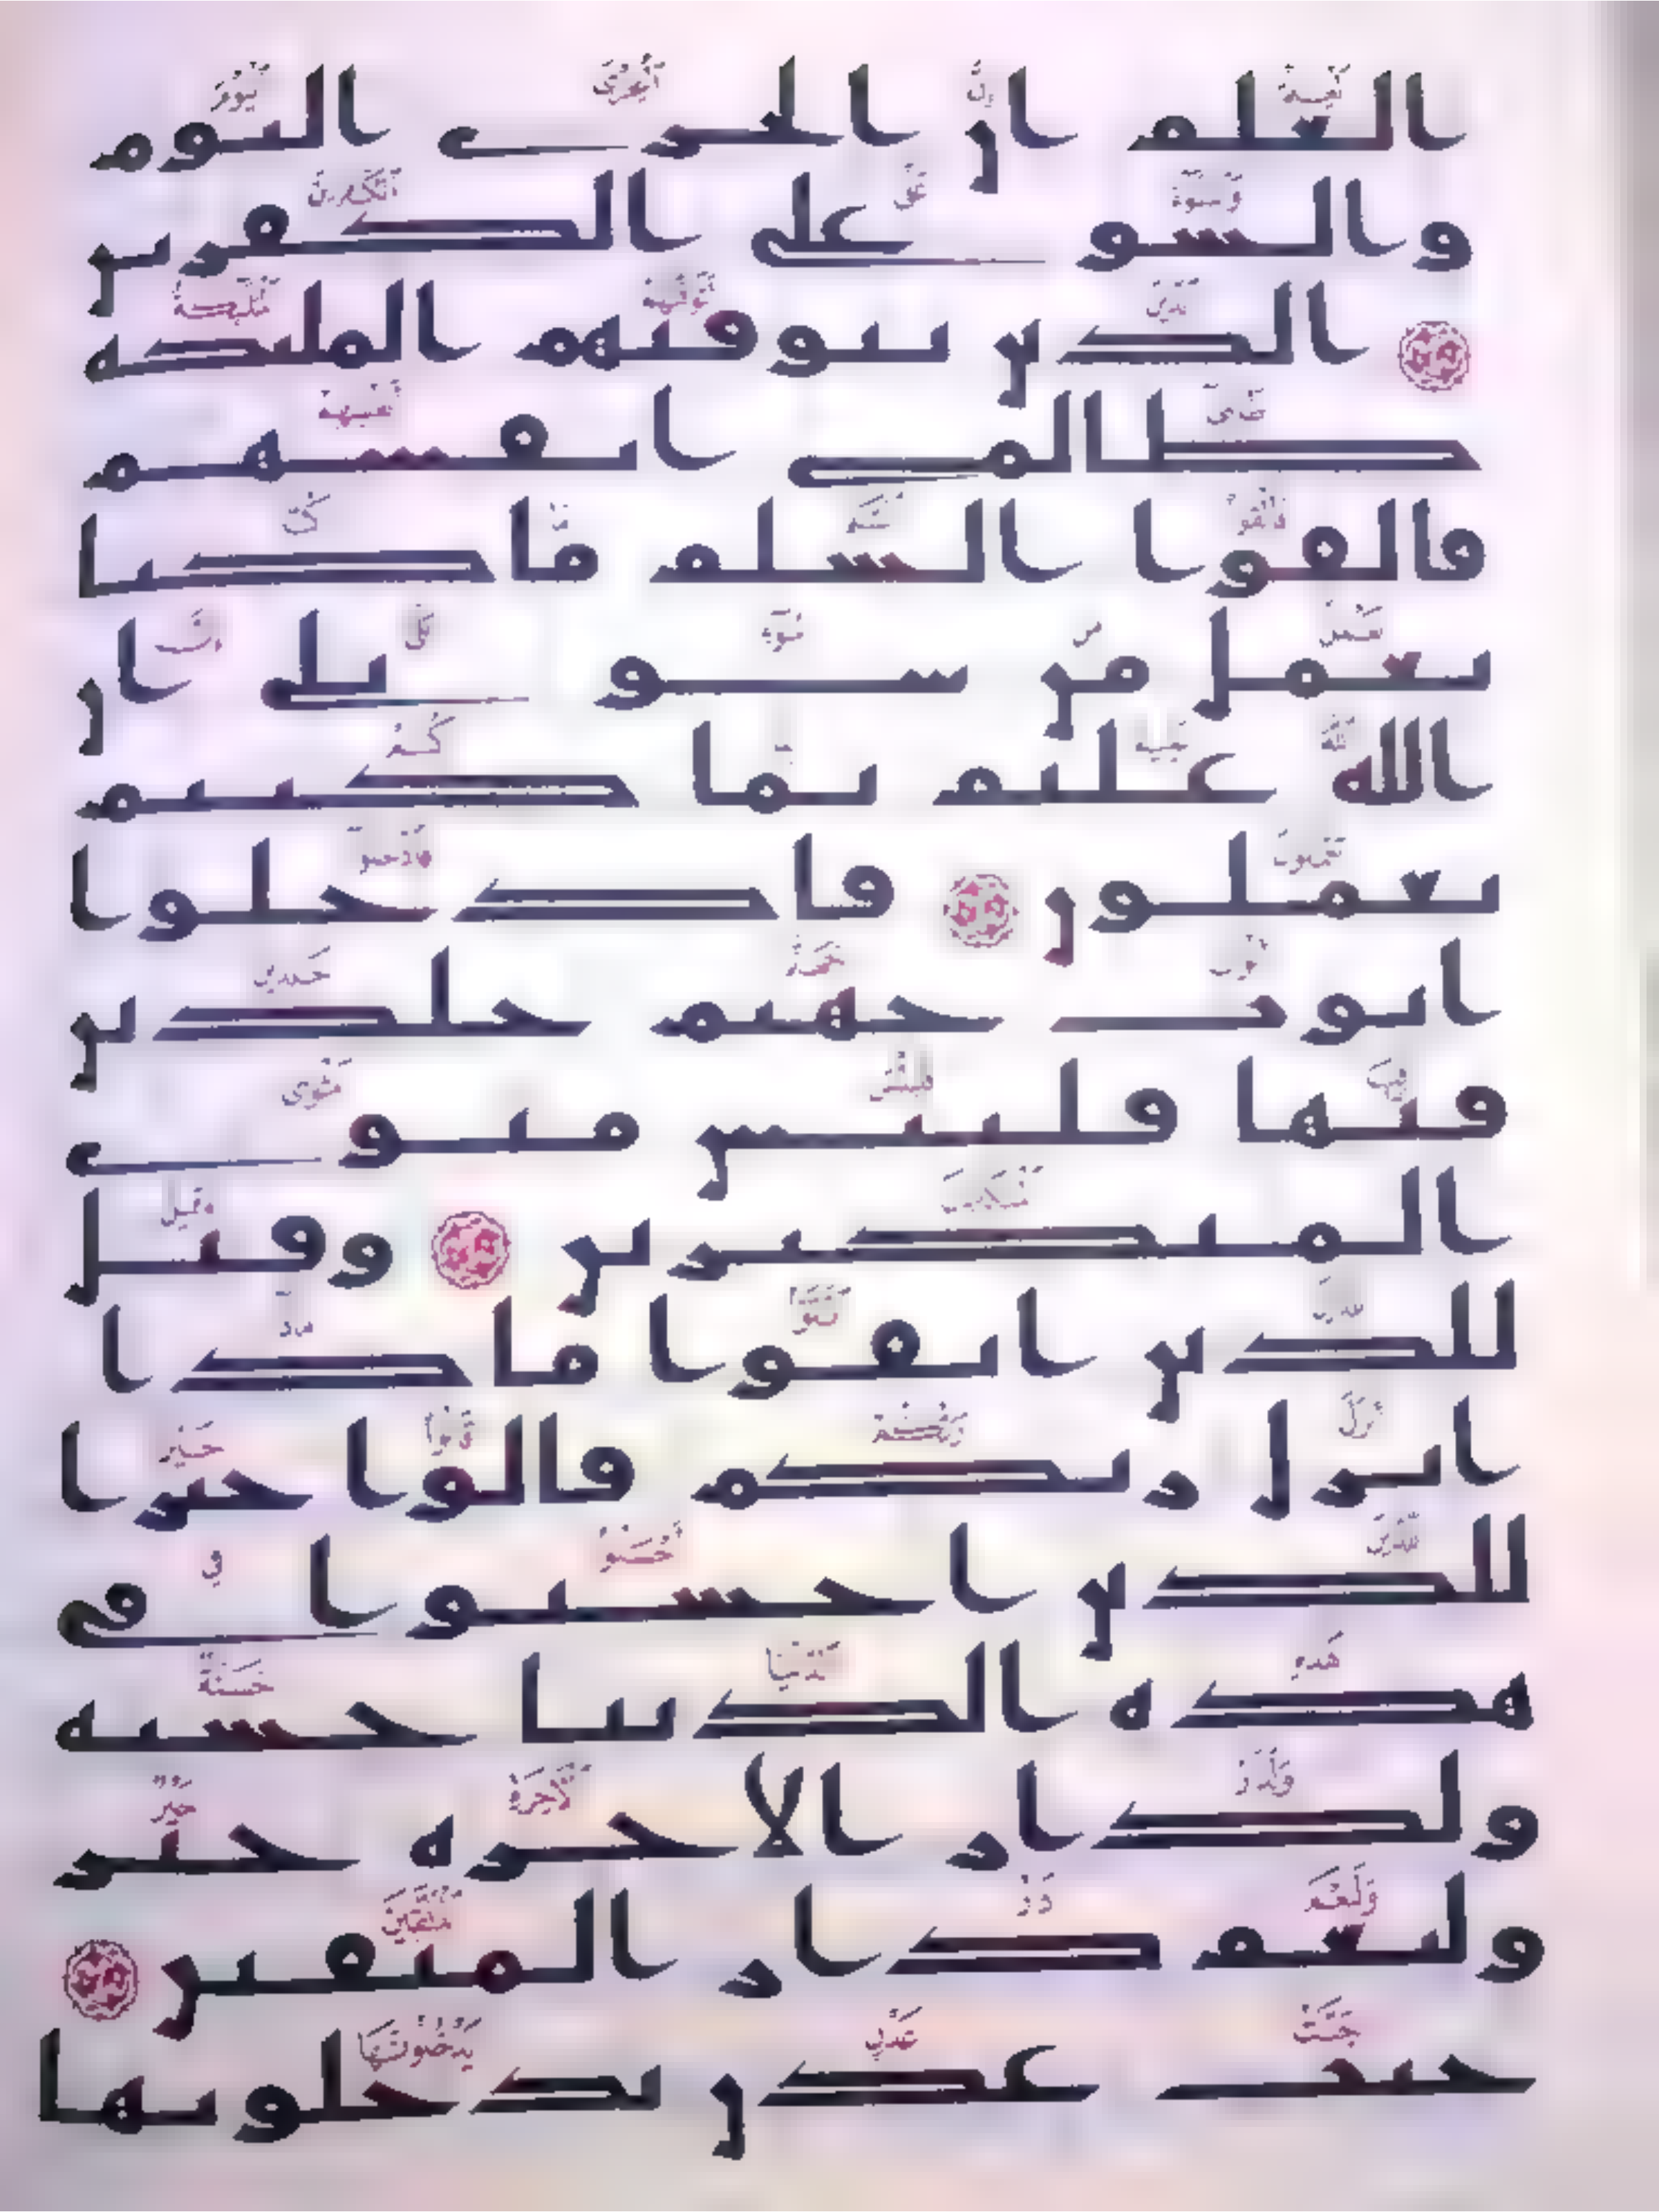 العلم ان الخزى اليوم
والسو على الكفرين
الذين تتوفيهم الملئكة
ظالمى انفسهم
فالقوا السلم ما كنا
نعمل من سو بلى ان
الله عليم بما كنتم
تعملون فادخلوا
ابوب جهنم خلدين
فيها فلبئس مثوى
المتكبرين وقيل
للذين اتقوا ماذا
انزل ربكم قالوا خيرا
للذين احسنوا فى
هذه الدنيا حسنة
ولدار الاخرة خير
ولنعم دار المتقين
جنت عدن يدخلونها